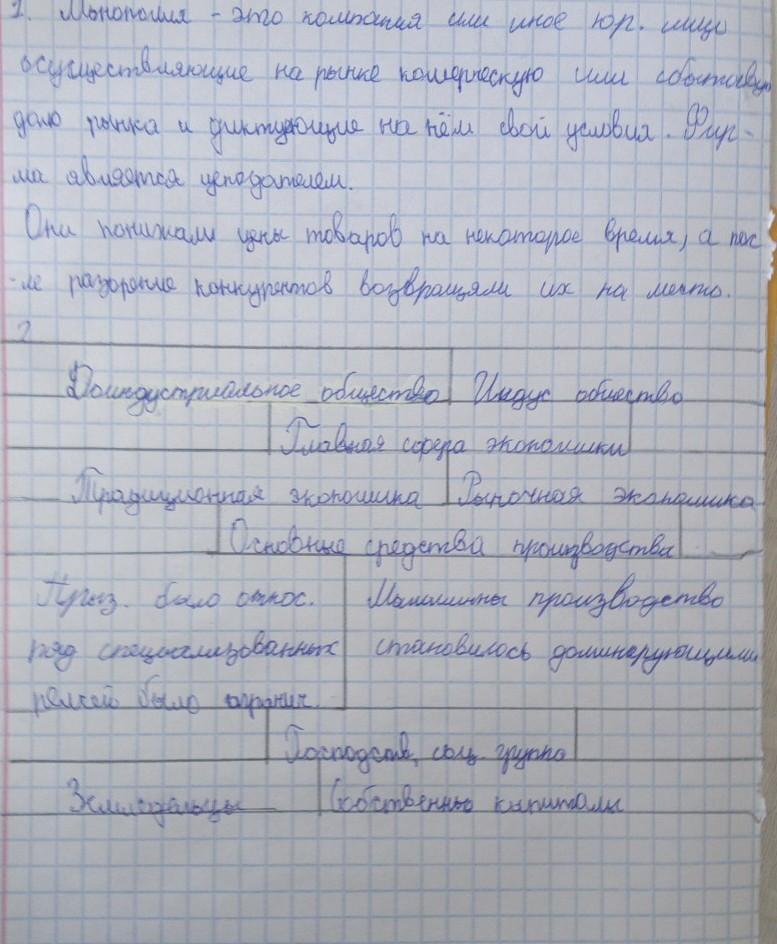 1. Монополия - это компания или иное юр. лицо
осуществляющие на рынке коммерческую или
долю рынка и диктующие на нём свой условия. Фир-
ма является ценодателем.
Они понижали цены товаров на некоторое время, а пос
-ле разорение конкурентов возвращали их на место.
2
Доиндустриальное общество Индус общество
Главная сфера экономики
Традиционная экономика Рыночная экономика
Основные средства производства
было относ. Машинны производство
ряд специализованных становилось доминерующими
было огранич.
Господств. соц. группа
Земледельцы Собственно капиталы